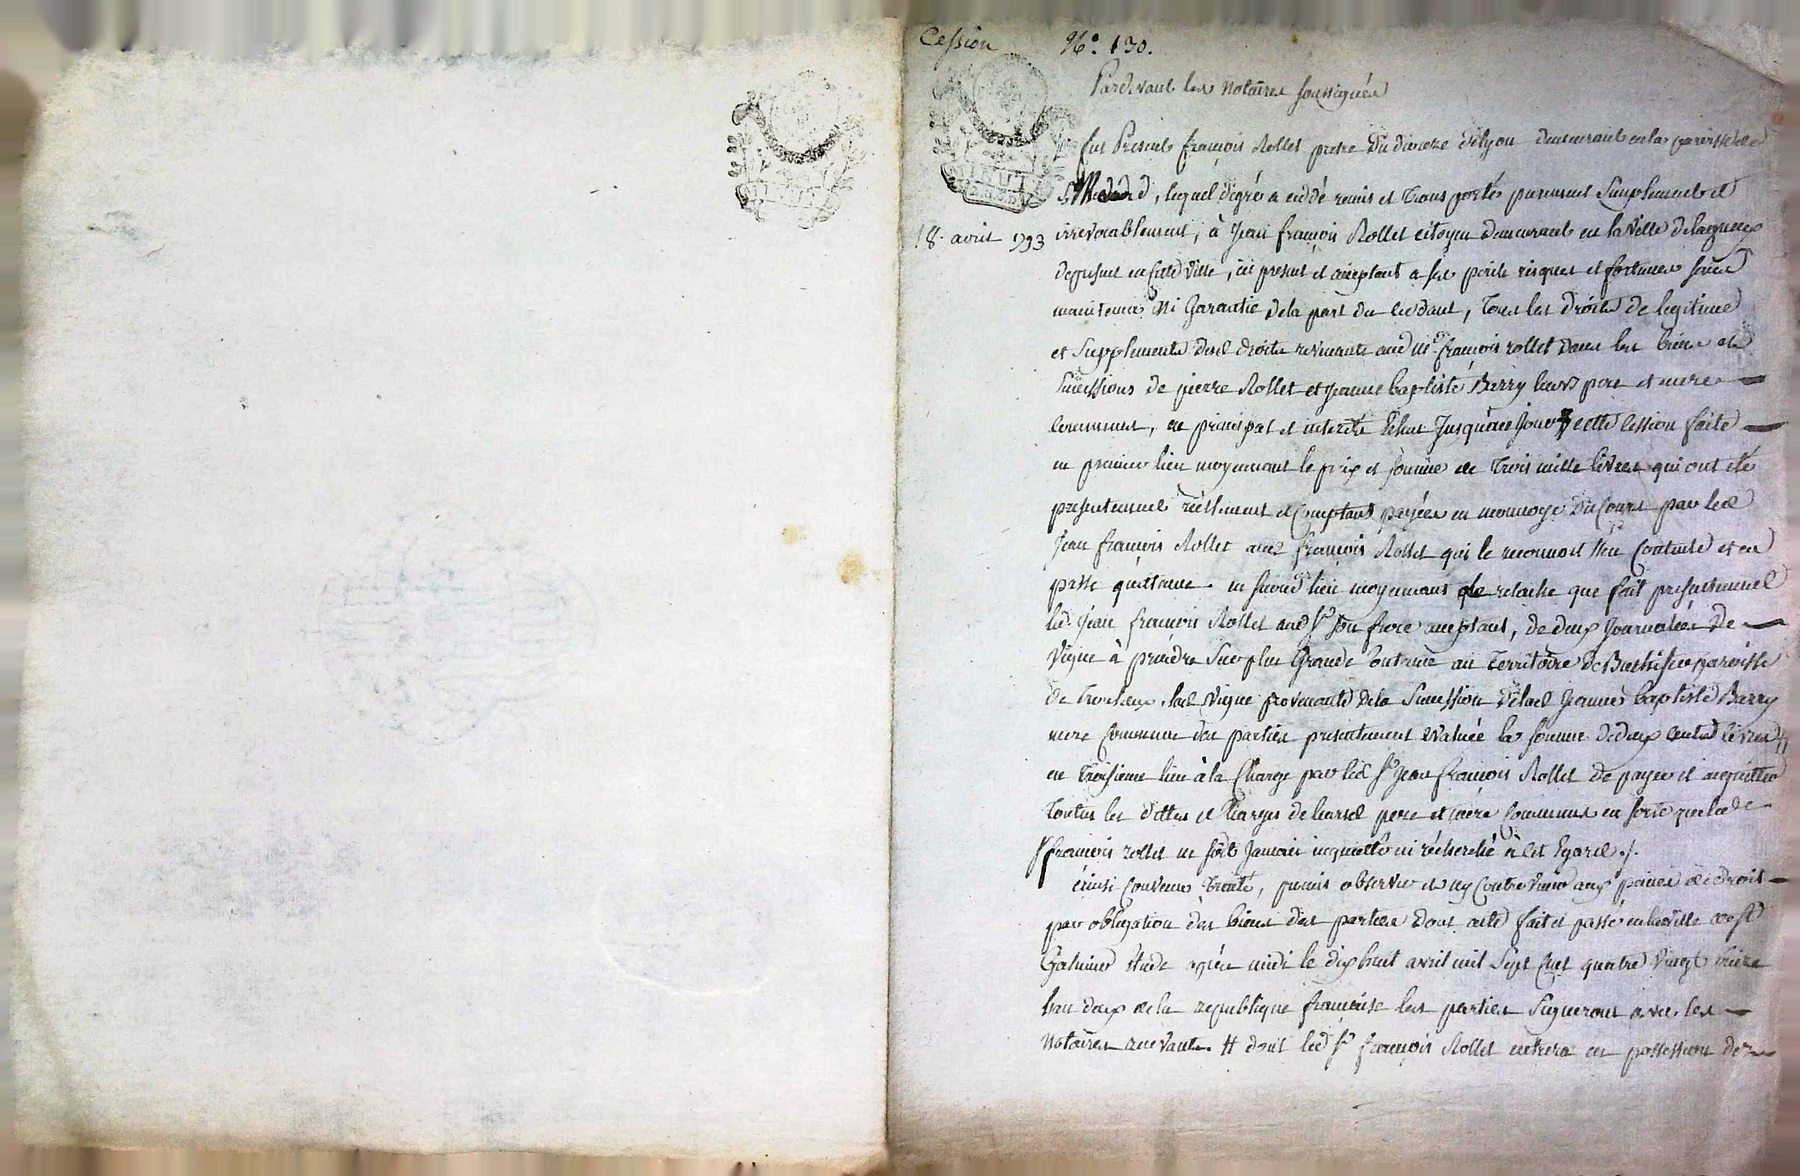 Cession N.° 130.
Pardevant les Notaires soussignés
fut Present françois Rollet pretre du dioceze de lyon demeurant en la paroisse de
St Medard, lequel de gré a cédé remis et transporté purement Simplement et
18. avril 1793
irrevocablement, à Jean françois Rollet citoyen demeurant en la Ville
en cette ville, ici present et acceptant a ses perils risques et fortunes sans
maintenue Ni Garantie de la part du cedant, tous les droits de legitime
et Supplement desd droits revenants aud mre françois rollet dans les biens et
Successions de pierre Rollet et Jeanne baptiste Barry leurs pere et mere
communs, en principal et interets Echus Jusqu'à ce Jour cette Cession faite
en premier lieu moyennant le prix et somme de trois mille livres qui ont été
presentement réellement et Comptant payées en monnoye du Cours par led
Jean françois Rollet aud françois Rollet qui le reconnoit s'en Contente et en
passe quittance. en second lieu moyennant le relache que fait presentement
led. Jean françois Rollet aud Sr son frere acceptant, de deux Journalées de
Vigne à prendre Sur plus Grande Contenue au Territoire de paroisse
de lad Vigne provenante de la Succession de lad Jeanne baptiste Barry
mere Commune des parties presentement evaluée la somme de deux cents livres #
en Troisieme lieu à la Charge par led Sr Jean françois Rollet de payer et acquitter
toutes les dettes et Charges de leursd pere et mere communs en sorte que led
Sr françois rollet ne soit Jamais inquietté ni récherché à cet Egard ./.
ainsi Convenu traité, promis observer et ny Contrevenir aux peines de droit
par obligation des biens des parties dont acte fait et passé en la ville de St
Galmier étude après midi le dix huit avril mil Sept Cent quatre Vingt treize
l'an deux de la republique françoise les parties Signeront avec les
Notaires recevants. # dont led Sr françois Rollet entrera en possession de